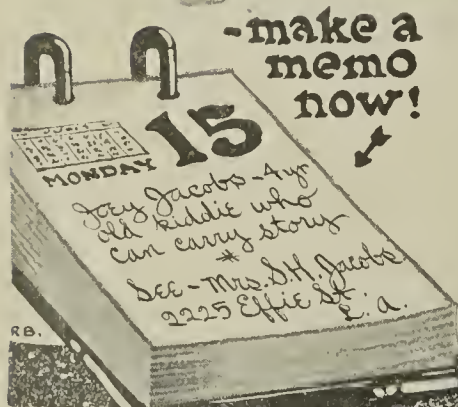 -make a
memo
now!
15
MONDAY
Joey Jacobs-4 yr
old kiddie who
can carry story
*
SEE-Mrs. S.H. Jacobs
2225 Effie St.
L.A.
RB.